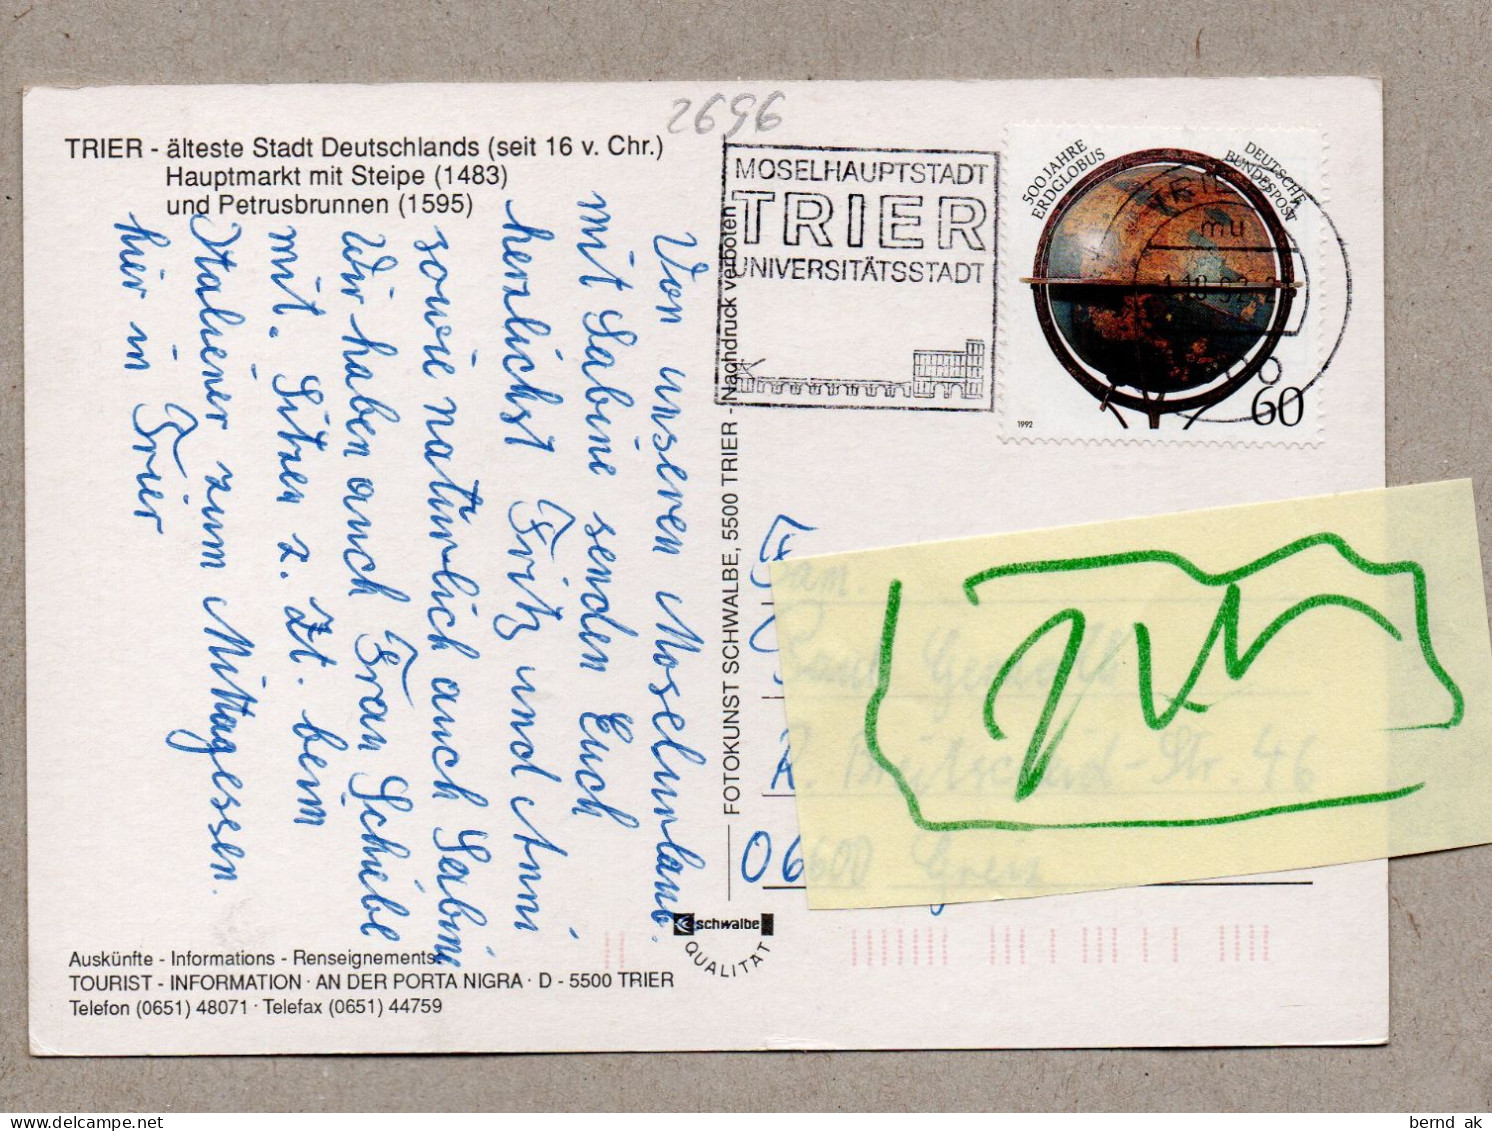 2696
TRIER - älteste Stadt Deutschlands (seit 16 v. Chr.)
Hauptmarkt mit Steipe (1483)
und Petrusbrunnen (1595)
Von unseren Moselurlaub
mit Sabine senden Euch
herzlichst Fritz und Anni
sowie natürlich auch Sabine
Wir haben auch Frau Scheibe
mit. Sitzen z. Zt. beim
Italiener zum Mittagessen.
hier in Trier
Auskünfte - Informations - Renseignements:
TOURIST - INFORMATION · AN DER PORTA NIGRA · D - 5500 TRIER
Telefon (0651) 48071 · Telefax (0651) 44759
FOTOKUNST SCHWALBE, 5500 TRIER - Nachdruck verboten
schwalbe
QUALITÄT
MOSELHAUPTSTADT
TRIER
UNIVERSITÄTSSTADT
500 JAHRE
ERDGLOBUS
DEUTSCHE
BUNDESPOST
1992
60
TRIER
mu
Fam.
R. Breitscheid-Str. 46
06600 Greiz
bernd ak